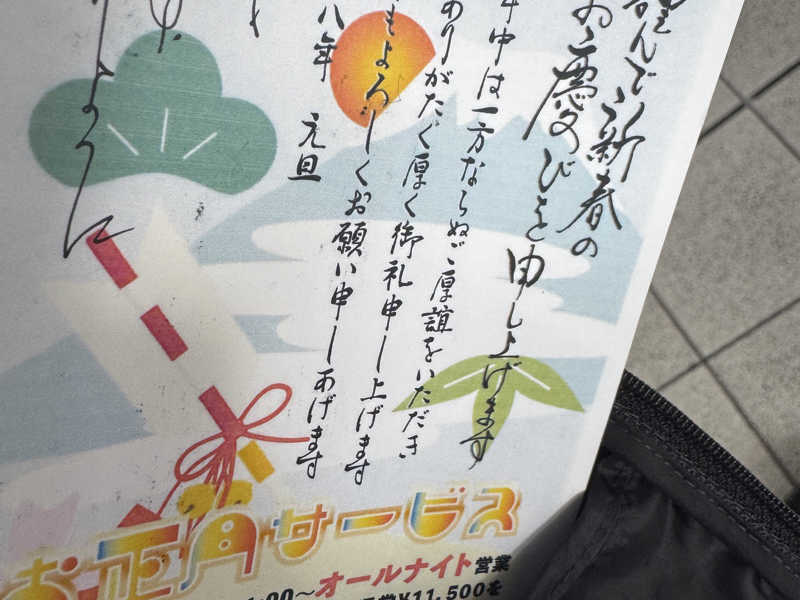 謹んで新春の
お慶びを申し上げます
年中は一方ならぬご厚誼をいただき
ありがたく厚く御礼申し上げます
もよろしくお願い申しあげます
八年 元旦
お正月サービス
:00～オールナイト営業
¥11,500を